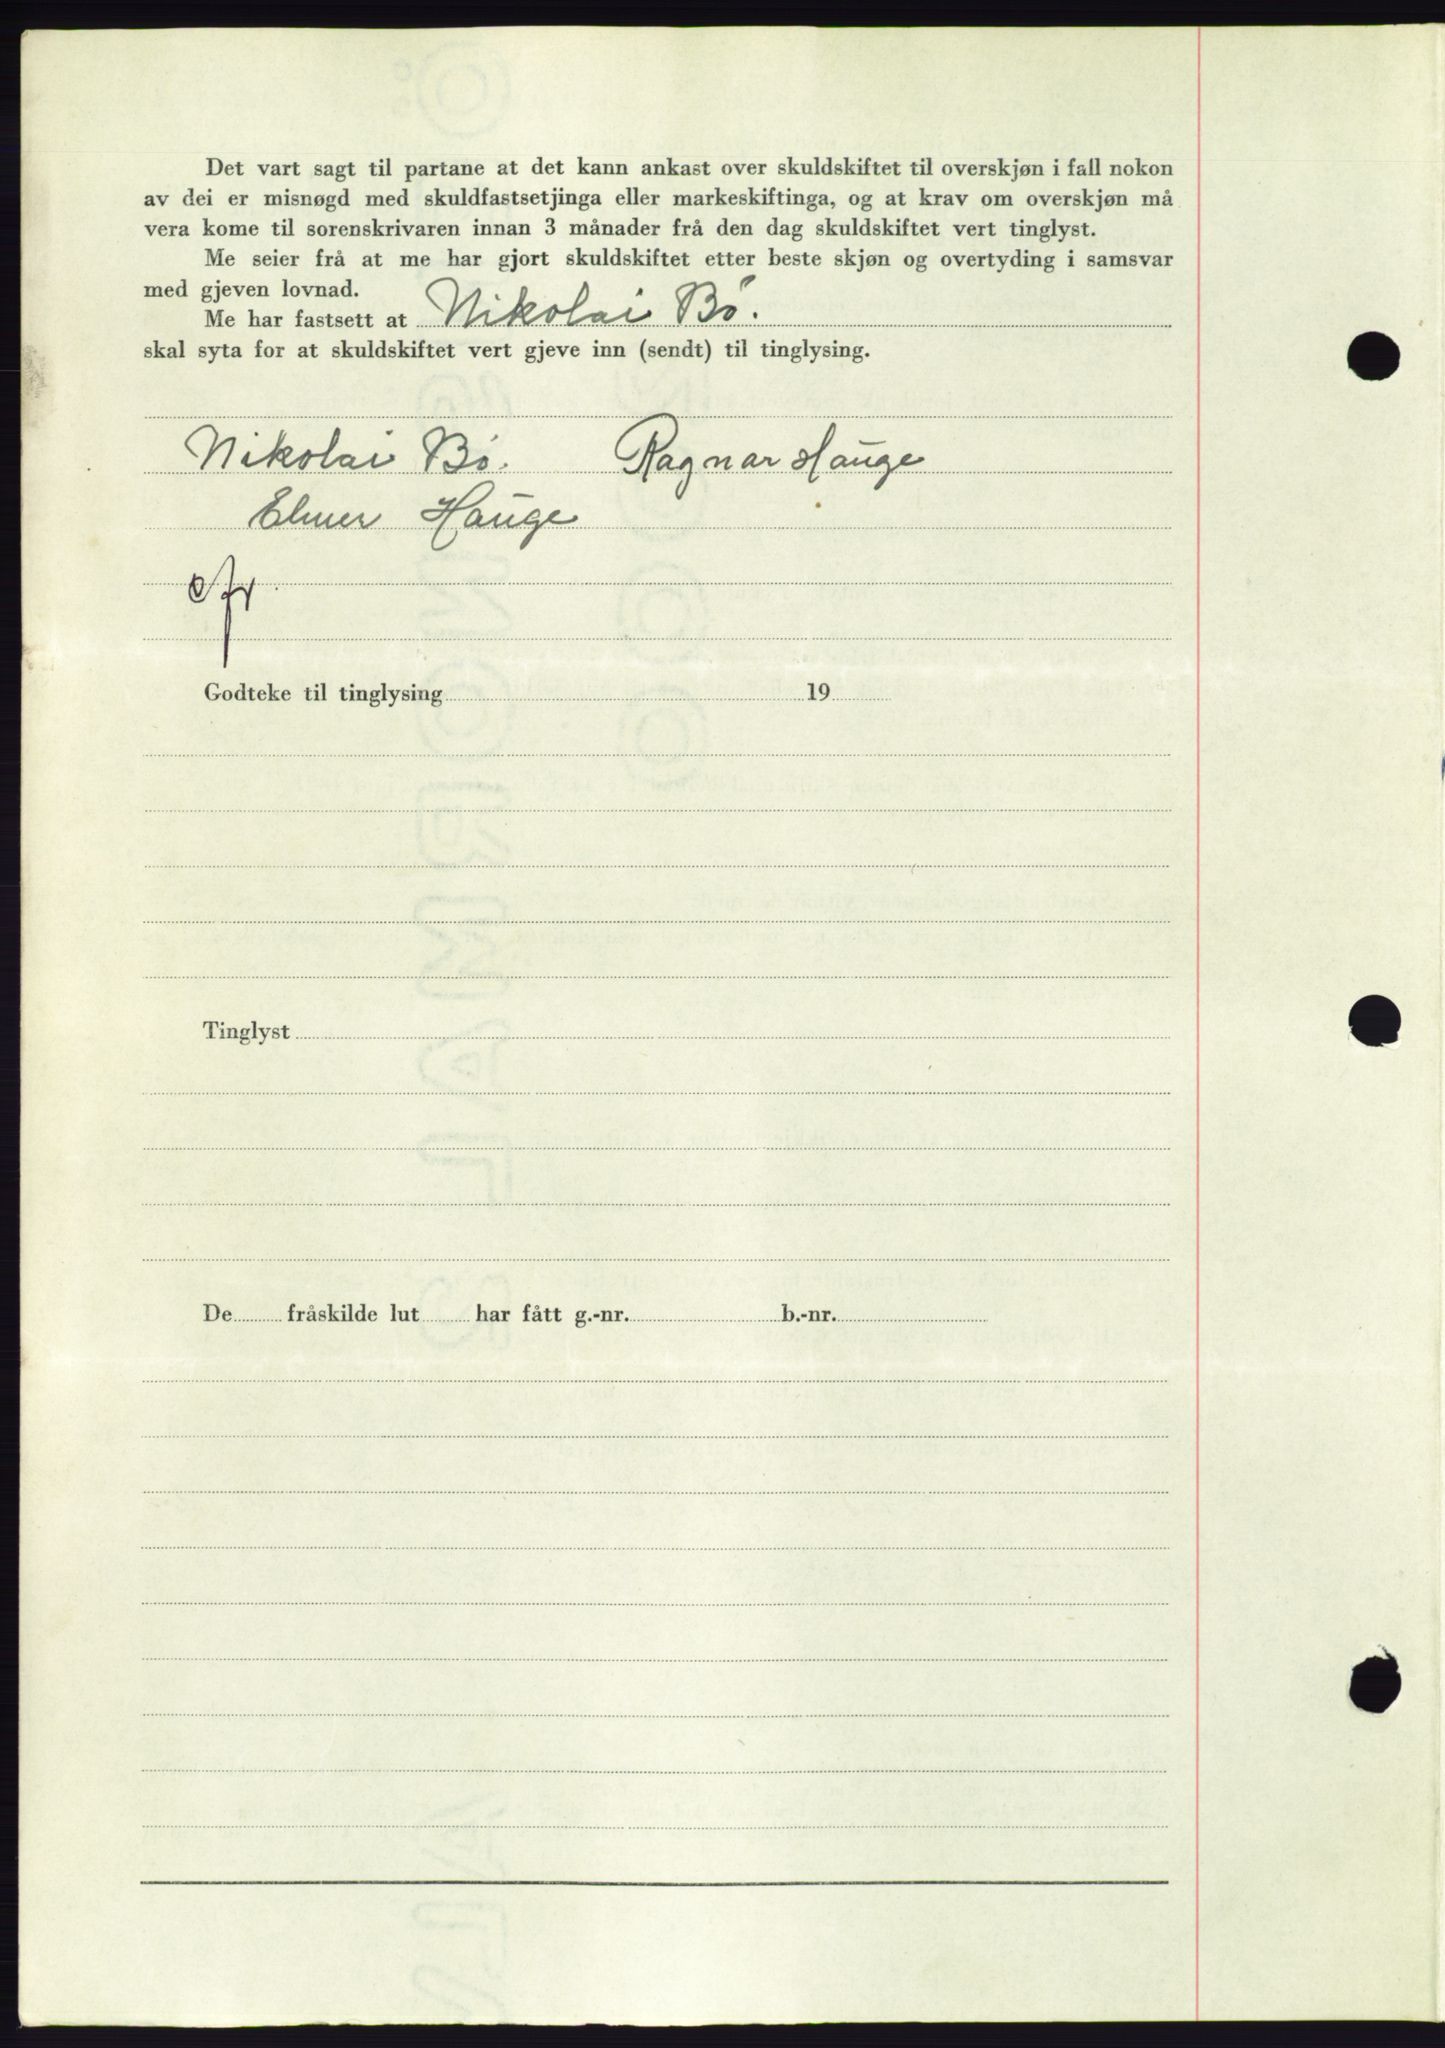 Det vart sagt til partane at det kann ankast over skuldskiftet til overskjøn i fall nokon
av dei er misnøgd med skuldfastsetjinga eller markeskiftinga, og at krav om overskjøn må
vera kome til sorenskrivaren innan 3 månader frå den dag skuldskiftet vert tinglyst.
Me seier frå at me har gjort skuldskiftet etter beste skjøn og overtyding i samsvar
med gjeven lovnad.
Me har fastsett at Nikolai Bö.
skal syta for at skuldskiftet vert gjeve inn (sendt) til tinglysing.
Nikolai Bö. Ragnar Hauge
Elmer Hauge
Godteke til tinglysing 19
Tinglyst
De fråskilde lut har fått g.-nr. b.-nr.